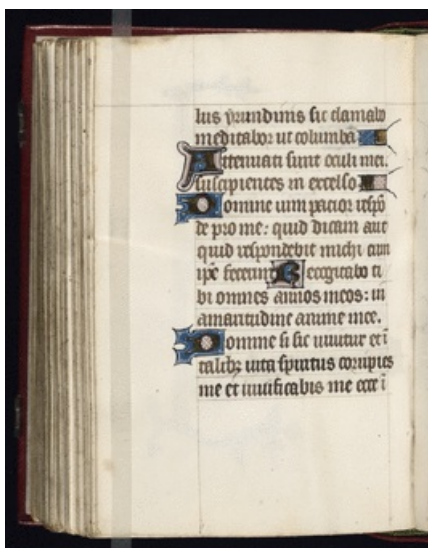 lus yrundinis sic clamabo
meditabor ut columba
Attenuati sunt oculi mei.
suscipientes in excelso
Domine uim pacior respō
de pro me: quid dicam aut
quid respondebit michi cum
ipē fecerim Recogitabo ti
bi omnes annos meos: in
amaritudine anime mee.
Domine si sic uiuitur et ī
talibȝ uita spiritus corripies
me et uiuificabis me ecce ī